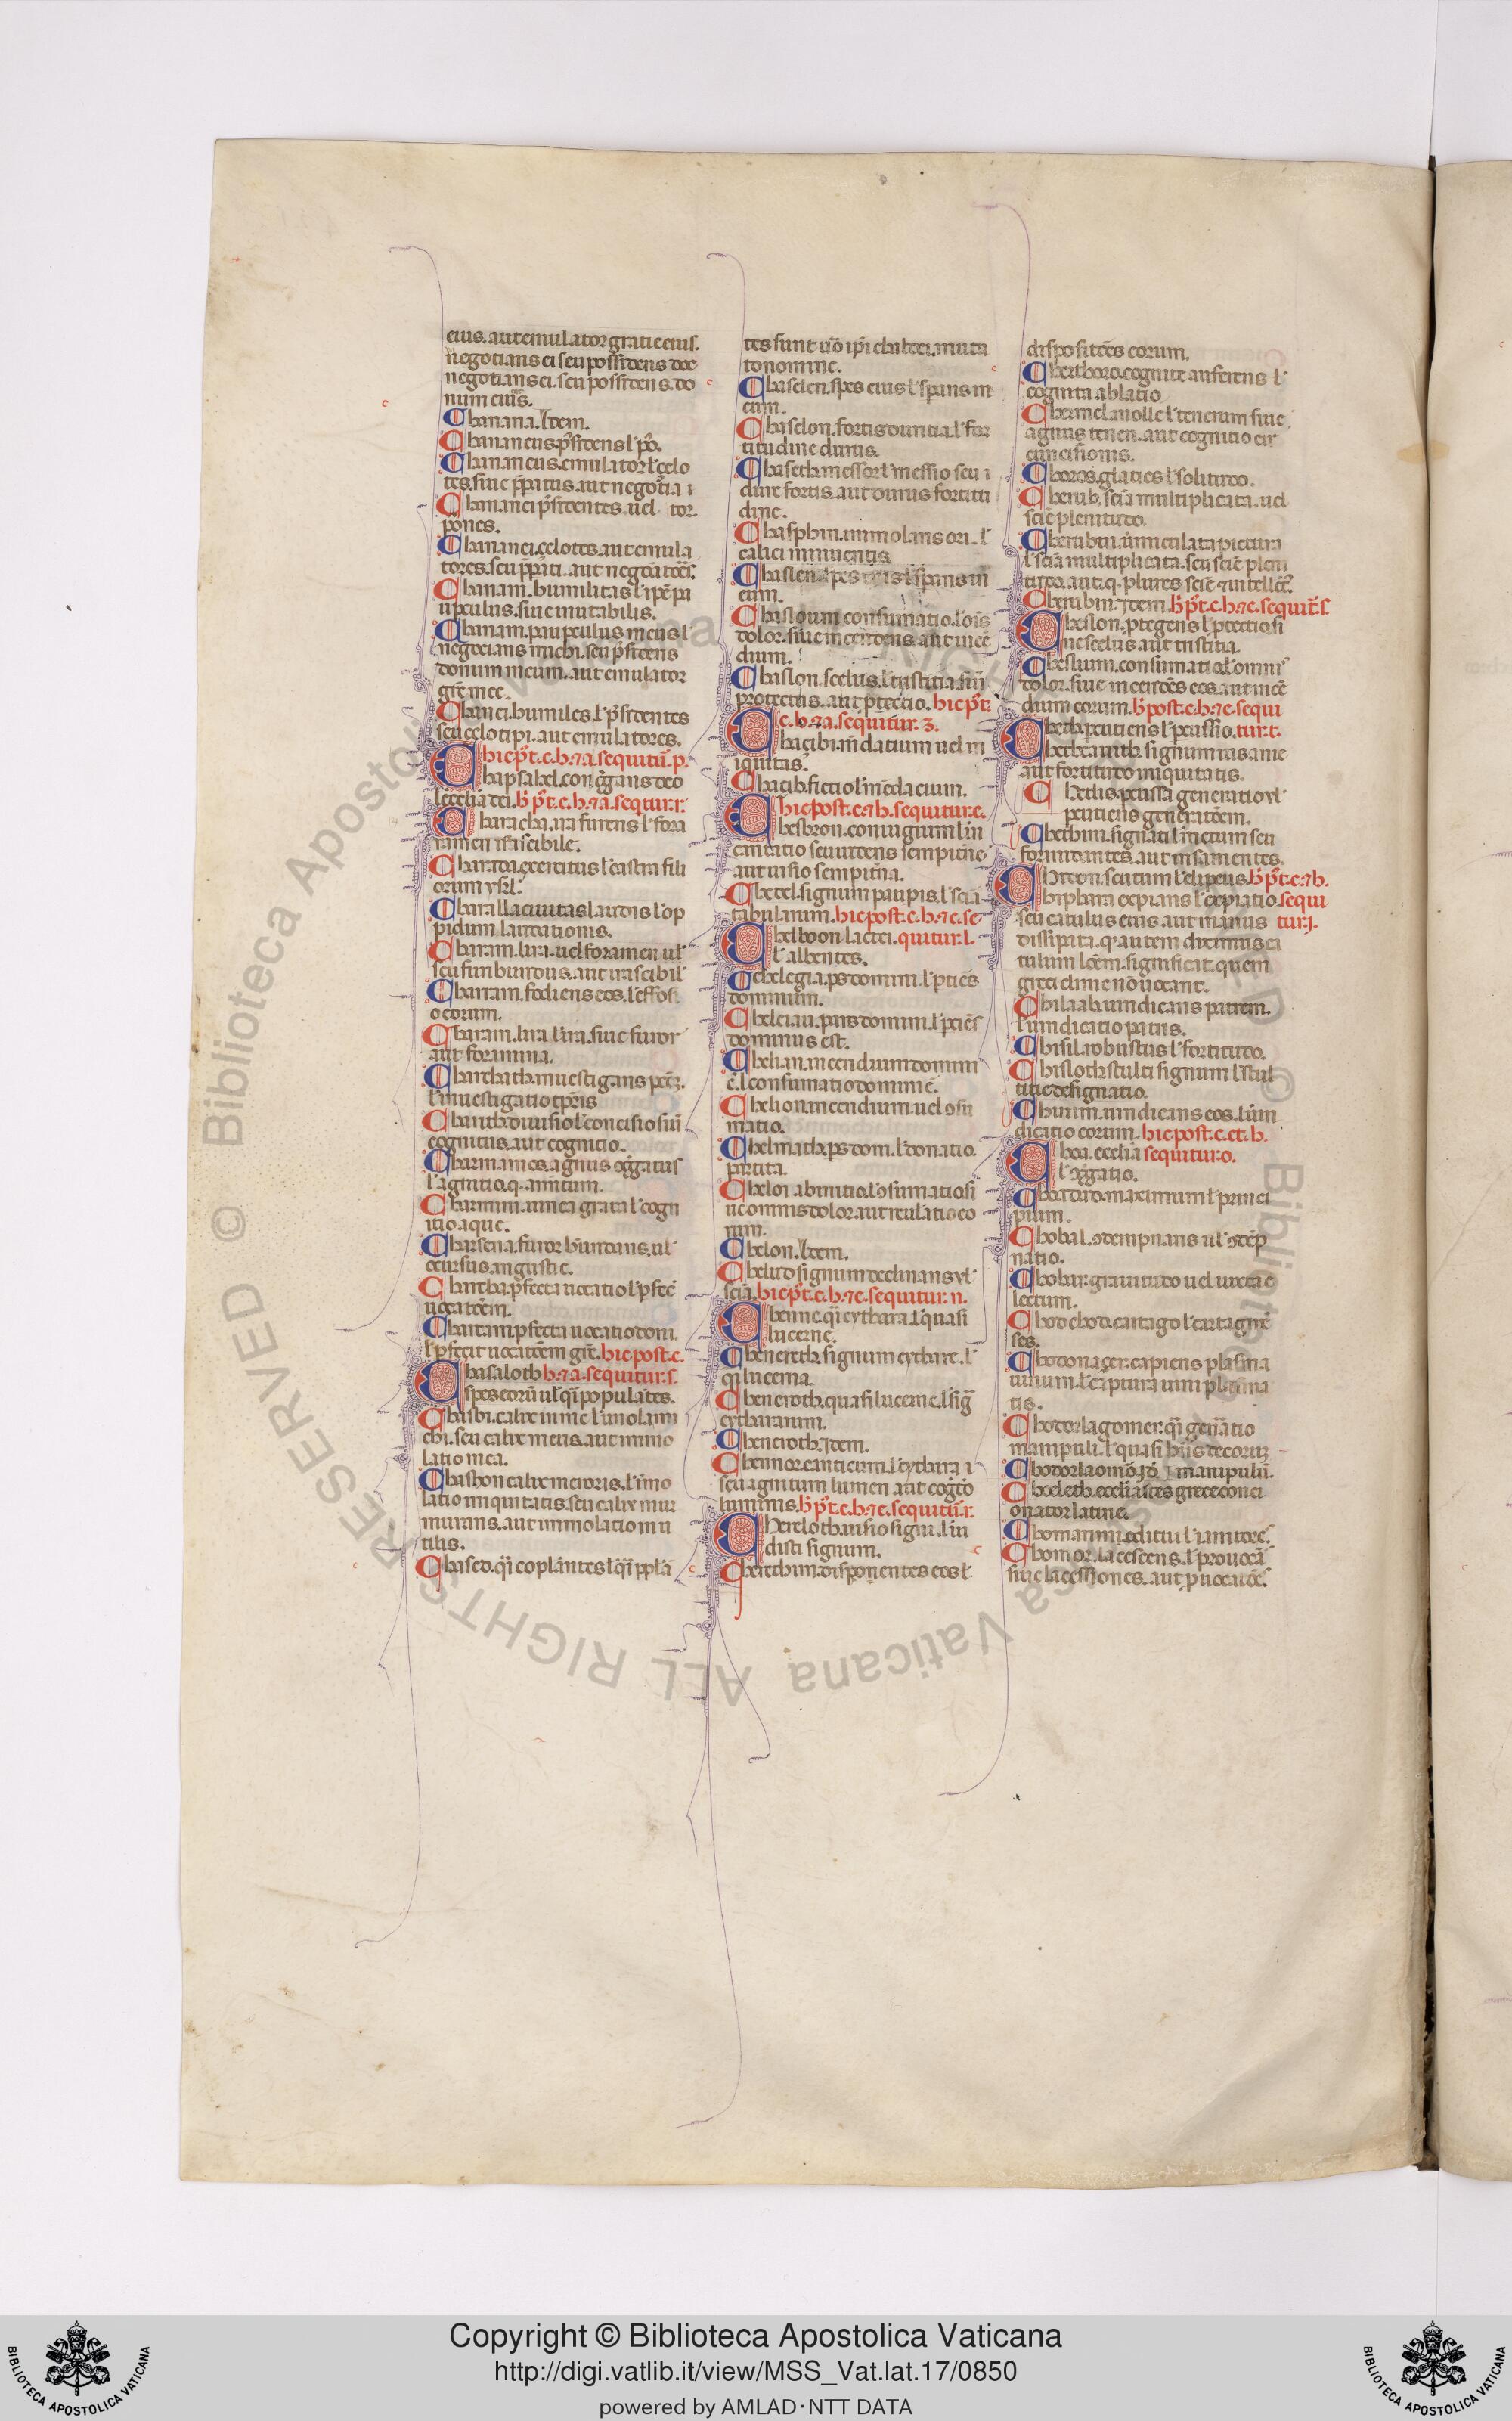 eius. aut emulator gratie eius.
negotians ei seu possidens do
negotians ei. seu possidens. do
num eius.
Chanana. Idem.
Chananeus. p̃sidens l̓ p̃o.
Chananeus. emulator l̓ çelo
tes. siue p̃patus. aut negotia i
Chananei p̃sidentes. uel tor.
pones.
Chananei. çelotes. aut emula
tores. seu p̃pati. aut negoĉia toēs.
Chanam. humilitas l̓ ip̃e pu
upculus. siue mutabilis.
Chanam. paupculus meus l̓
negocians michi. seu p̃sidens
donum meum. aut emulator
gr̃e mee.
Chanei. humiles. l̓ p̃sidentes
seu çelotipi. aut emulatores.
hic p̃t. c. h. ⁊ a. sequitur. p.
Chapsabel. congr̃gans deo
l̓ ecclia dei. h̓ p̃t. c. h. ⁊ a. seqtur. r.
Characha. ira furens l̓ fora
ramen irascibile.
Charada. exercitus l̓ castra fili
orum ysrl.
Charalla ciuitas laudis l̓ op
pidum laudationis.
Charam. lira. uel foramen ul̓
seu furibundus. aut irascibil̓
Charram. fodiens eos. l̓ effosi
o eorum.
Charam. lira l̓ ira. siue furor
aut foramina.
Charchath. inuestigans
l̓ inuestigatio tp̃ris
Charith. diuisio l̓ concisio siū
cognitus. aut cognicio.
Charmi. ameos. agnus ɔgr̃gatus
l̓ agnitio. q. amicum.
Charmim. uinea grata l̓ cogn
itio. aque.
Charsena. furor habundans. ul̓
cursus angustie.
Chartha. p̃fecta uocatio l̓ p̃fec̃
uocatōem.
Chartam. p̃fecta uocatio dom.
l̓ p̃fecit uocatōem gr̃e. hic post. c.
Chasaloth h. ⁊ a. sequitur. s.
spes eorū ul̓ q̃i populates.
Chasbi. calix mine l̓ imolam
chi. seu calix meus. aut immo
latio mea.
Chasbon calix meroris. l̓ īmo
latio iniquitatis. seu calix mur
murans. aut immolatio inu
tilis.
Chaseo. q̃i coplantes l̓ q̃i pplā
tes sunt uō ip̃i chaldei. muta
to nomine.
Chaselen. spes eius l̓ spans in
eum.
Chaselon. fortis duncia. l̓ for
titudine durus.
Chaseth. messor l̓ messio seu i
dure fortis. aut durus fortitu
dine.
Chasphin. immolans ori. l̓
calici innuentis
Chaslen. spes eius l̓ spans in
eum.
Chasloum consumatio. l̓ oīs
dolor. siue incendens. aut incē
dium.
Chaslon. scelus. l̓ tristitia. siū
protectus. aut p̃tectio. hic p̃t.
c. h. ⁊ a. sequitur. z.
Chaçibi. m̄datium uel in
iquitas.
Chaçib. fictio l̓ mēdacium.
hic post. c. ⁊ h. sequitur. e.
Chesbron. coniugium l̓ in
cantatio seu uidens sempitñe
aut uisio sempitña.
Chetel. signum paupis. l̓ scia
tabularum. hic post. c. h. ⁊ e. se
Chelboon lactei. quitur. l.
l̓ albentes.
Chelegia. ps domini. l̓ ptiēs
dominum.
Chelciau. pars domini. l̓ ptiēs
dominus est.
Chelian. incendium domini
ē. l̓ consumatio domini ē.
Chelion. incendium. uel ɔsu
matio.
Chelmath. ps dom. l̓ donatio
partita.
Cheloi ab initio. l̓ ɔsumatio si
ue omnis dolor. aut reuelatio eo
rum.
Chelon. Idem.
Chelud signum declinans. ul̓
sciā. hic p̃t. c. h. ⁊ e. sequitur. n.
Chenne. q̃i cythara. l̓ quasi
lucerne.
Chenereth. signum cythare. l̓
q̃i lucerna.
Cheneroth. quasi lucerne. l̓ sig̃
cytharatum.
Cheneroth. Idem.
Chennor. canticum. l̓ cythara i
seu agnitum lumen aut cog̃to
luminis. h̓ p̃t. c. h. ⁊ e. sequitur. r.
Cherelothi. uisio signi. l̓ ui
disti signum.
Cherethim. disponentes eos l̓
dispositōes eorum.
Cherthoro. cognite auferens l̓
cognita ablatio
Chermel. molle l̓ tenerum siue
agnus tener. aut cognitio cir
cumcisionis.
Choros. glacies l̓ solitudo.
Cherub. sciā multiplicata. uel
scīe plenitudo.
Cherubin. uīniculata pictura
l̓ sciā multiplicata. seu scīe pleni
tudo. aut. q. plures scīe ⁊ intellc̃.
Cherubin. Idem. h̓ p̃t. c. h. ⁊ e. sequit̃. s.
Cheslon. p̃tegens l̓ p̃tectio si
ue scelus aut tristitia.
Cheslium. consumatio. l̓ omnis
dolor. siue incendēs eos. aut incē
dium eorum. h̓ post. c. h. ⁊ e. sequi
Cheth. pcutiens l̓ pcussio. tur. t.
Chethearuth. signum uis a me
aut fortitudo iniquitatis.
Chetlis. pcussa generatio ul̓
pcutiens generatōem.
Chethim. signati l̓ metum seu
formidantes. aut insanientes.
Chreon. scutum l̓ clipeus. h̓ p̃t. c. ⁊ h.
Chiphara expians l̓ expiatio. sequi
seu catulus eius. aut manus tur. j.
dissipata. qr̃ autem diximus ca
tulum leōem. significat. quem
greci dim̄no uocant.
Chilaab. uindicans patrem.
l̓ uindicatio patris.
Chisil. robustus l̓ fortitudo.
Chisloth. stulti signum l̓ stul
titie designatio.
Chiuim. uindicans eos. l̓ uin
dicatio eorum. hic post. c. et. h.
Choa. ecclia sequitur. o.
l̓ ɔgr̃gatio.
Choardito. maximum l̓ princi
pium.
Chobal. ɔtempnans ul̓ ɔtēp
natio.
Chobar. grauitudo uel iuxta e
lectum.
Chodchod. cartago l̓ cartaginē
ses.
Chodonager. capiens plasma
uiuum. l̓ captura uiui plasma
tis.
Chodorlagomer. q̃i genr̃atio
manipuli. l̓ quasi hñs decoruȝ
Chodorlaomō. Id̄ manipulū.
Choeleth. ecclesiastes grece. conci
onator latine.
Chomarim. editui l̓ ianitores.
Chomor. lacessens. l̓ prouocās
siue lacessiones. aut p̃uocatōes.
Copyright © Biblioteca Apostolica Vaticana
http://digi.vatlib.it/view/MSS_Vat.lat.17/0850
powered by AMLAD·NTT DATA
BIBLIOTECA APOSTOLICA VATICANA
BIBLIOTECA APOSTOLICA VATICANA
© Biblioteca Apostolica Vaticana ALL RIGHTS RESERVED